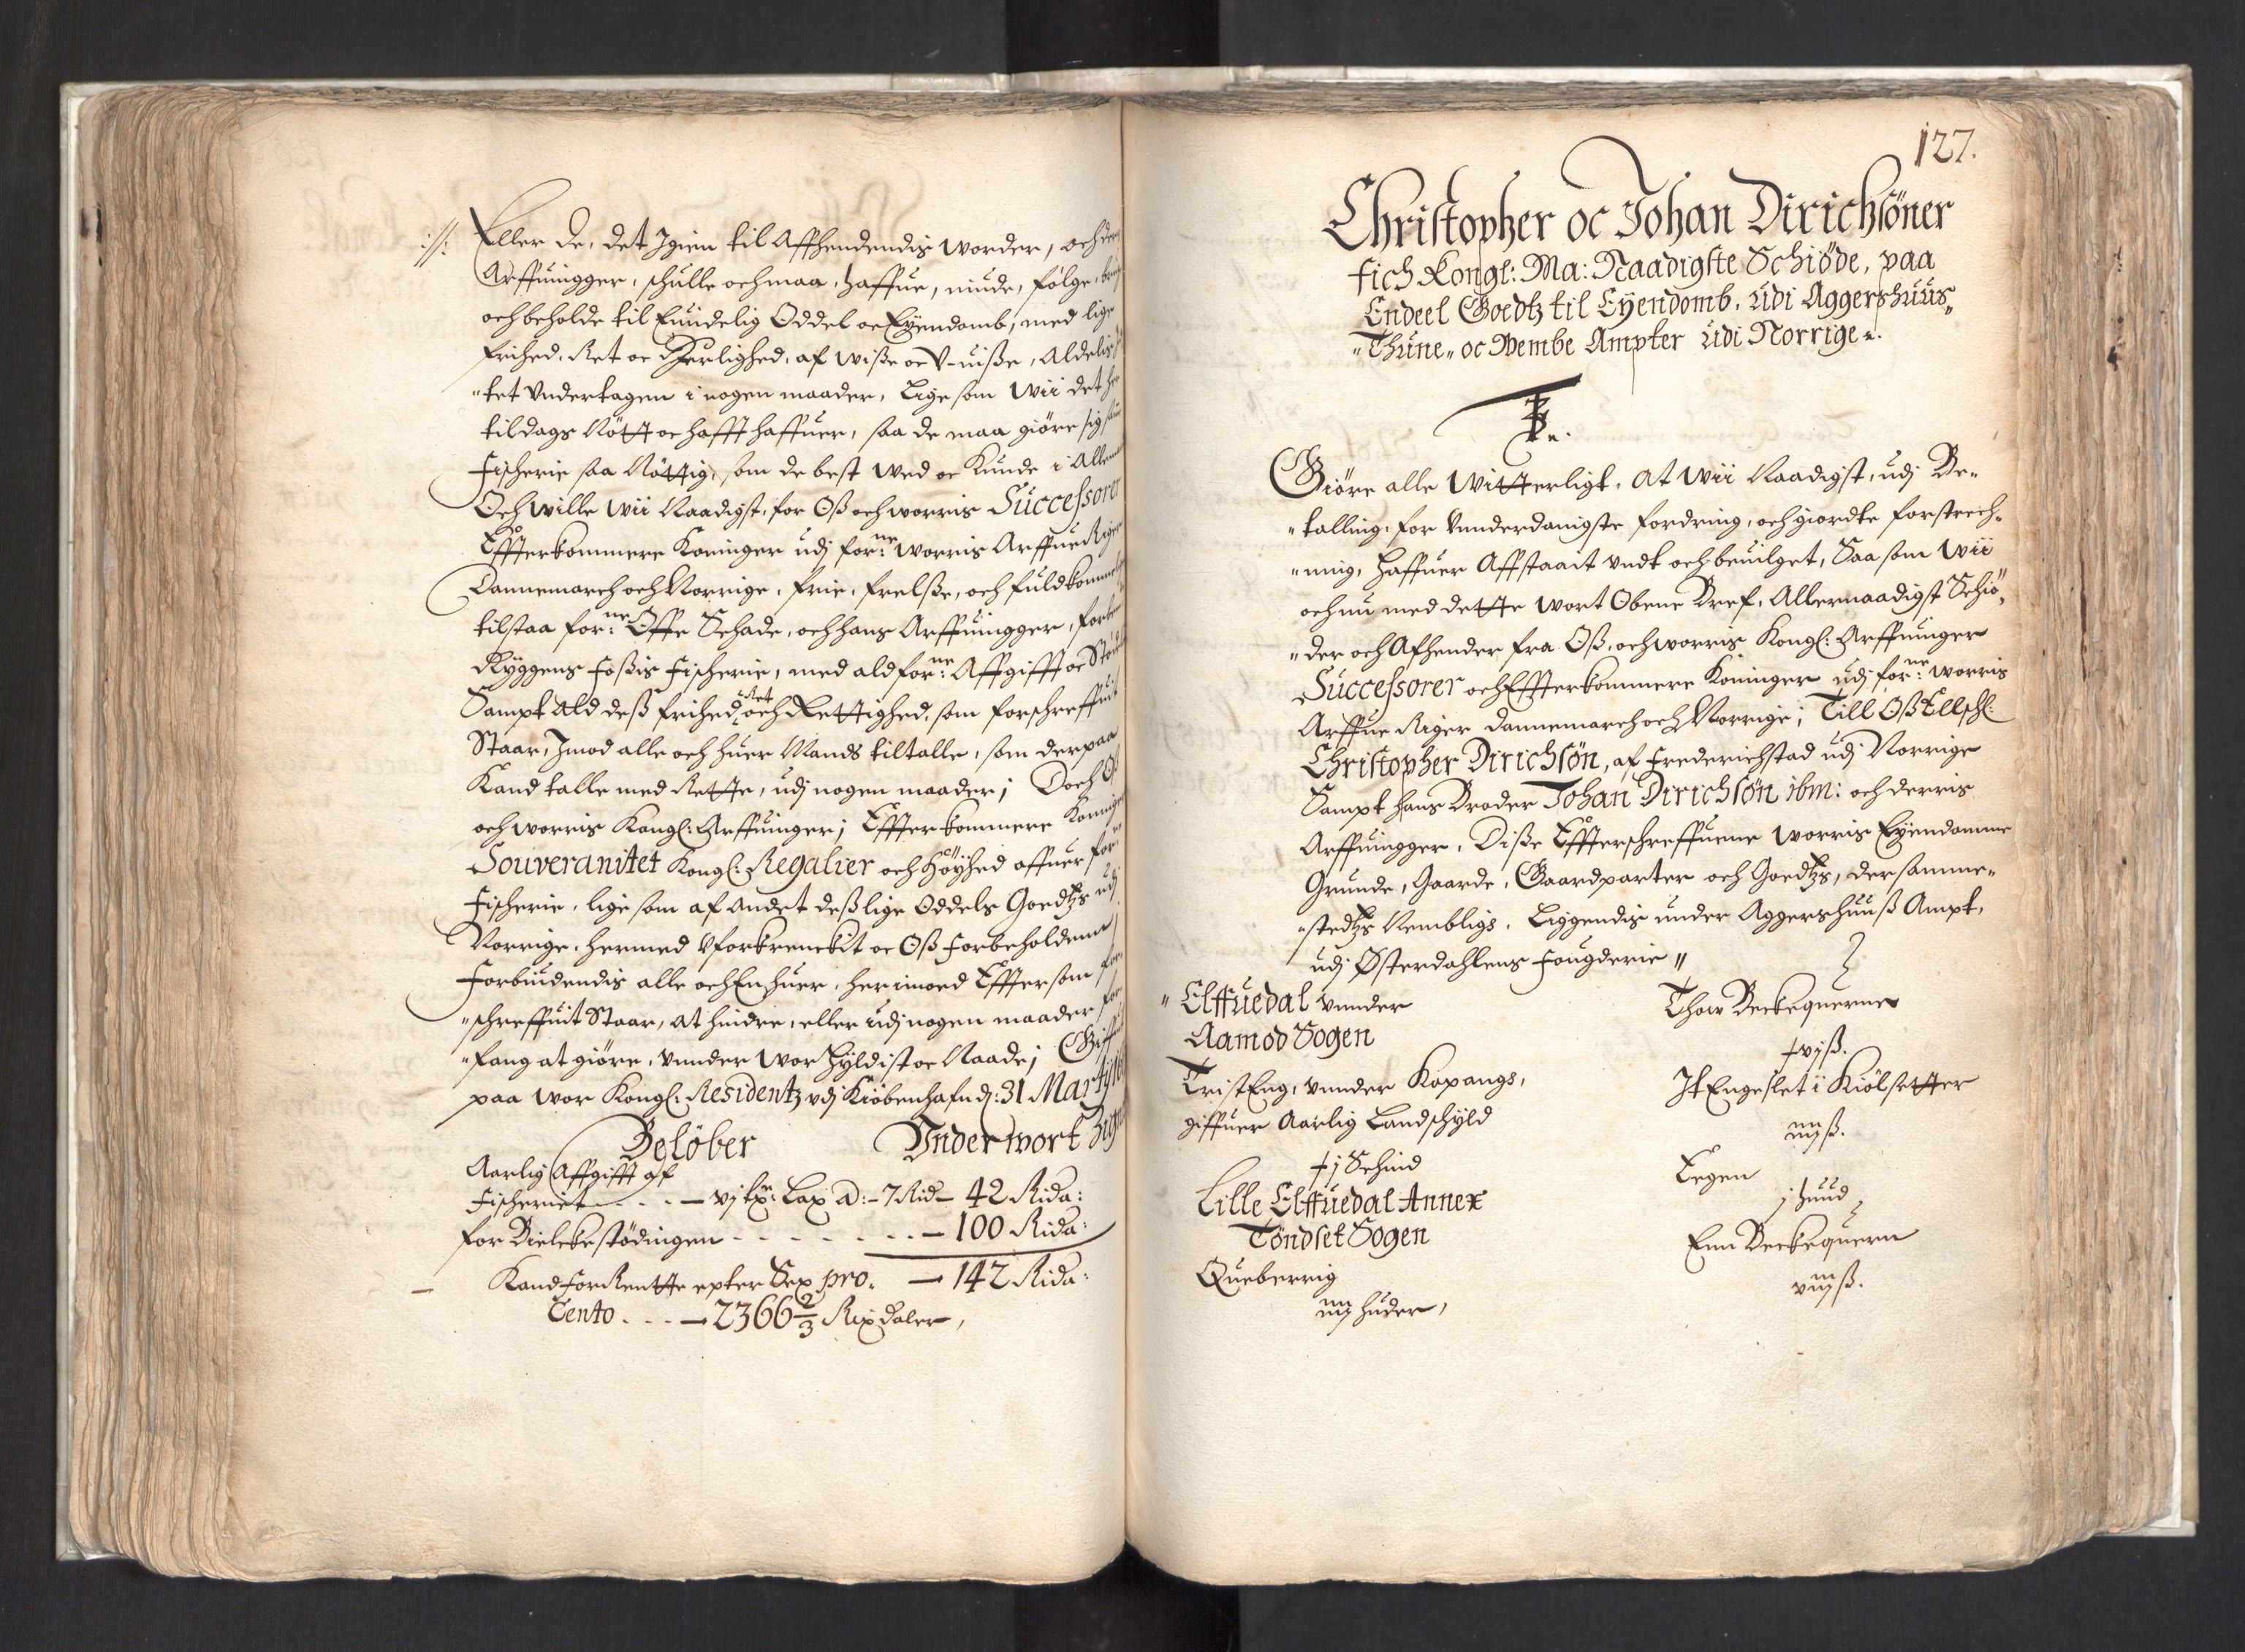 ://: Eller de, det Igien til Affhendendis worder, och deris
Arffuingger, schulle och maa, haffue, niude, følge, brug
och beholde til Euindelig Oddel oc Eyendomb, med lige
frihed, Ret oc Herlighed, af wiße oc V-uiße, Aldelis in
"tet Vndertagen i nogen maader, Lige som Wii det her
til dags Nøtt oc hafft haffuer, saa de maa giøre sig
fischerie saa Nøttig, som de best wed oc Kunde i Alle
Och wille Wii Naadigst, for Oß och worris Successorer
Effterkommere Koninger udj for:ne worris Arffue Riger
Dannemarch och Norrige, frie, frelße, och fuldkommelig
tilstaa for:ne Offe Schade, och hans Arffuingger,
Ryggens Foßis Fischerie, med ald for:ne Affgifft oc
Sampt Ald deß frihed, Ret och Rettighed, som forschreffuit
Staar, Imod alle och huer Mands tiltalle, som derpaa
Kand talle med Rette, udj nogen maader; Doch Oß
och worris Kongl: Arffuinger; Effterkommere Koninger
Souveranitet Kongl: Regalier och Höyhed offuer for:ne
Fischerie, lige som af Andet deßlige Oddels Goedtz udj
Norrige, hermed Vforkrencket oc Oß forbeholdene
Forbiudendis alle och Enhuer, her imoed Effter som for
"schreffuit Staar, At hindre, eller udj nogen maader for
"fang at giøre, vnder Wor Hyldist oc Naade; Giffuet
paa Wor Kongl: Residentz vdj Kiöbenhafn d: 31 Martij
Belöber Vnder wort Zignet
Aarlig Affgifft af
Fischeriet - . . - vj tr: Lax a: - 7 Rid - 42 Rida:
for Bielckestödingen - - - - - - . . - 100 Rida:
Kand for Rentte epter Sex pro. - 142 Rida:
Cento . . . - 2366 2/3 Rixdaler,
127.
Christopher oc Johan Dirichsöner
fich Kongl: Ma: Naadigste Schiöde, paa
Endeel Goedtz til Eyendomb, udi Aggershuus,
"Thune" oc Wembe Ampter udi Norrige.
Giöre alle Witterligt, At Wii Naadigst, udj Be-
"talling, for Vnderdanigste fordring, och giordte forstrech-
"ning, Haffuer Affstaait vndt och beuilget, Saa som Wii
och nu med dette Wort Obene Bref, Allernaadigst Schiö-
"der och Afhender fra Oß, och worris Kongl: Arffuinger
Successorer och Effterkommere Koninger udj for:ne worris
Arffue Riger Dannemarch och Norrige; Till Oß Ellschl:
Christopher Dirichsön, af Frederichstad udj Norrige
Sampt hans Broder Johan Dirichsön ibm: och derris
Arffuingger, Diße Effterschreffuene Worris Eyendomme
Grunde, Gaarde, Gaardparter och Goedtz, der samme-
"stedtz Nembligs, Liggendis under Aggershuuß Ampt,
udj Østerdahlens Fougderie "
"Elffuedal vnder
Aamod Sogen
Trist Eng, vnder Kopangs,
giffuer Aarlig Landschyld
+ j Schind
Lille Elffuedal Annex
Töndset Sogen
Queberrig
iiij huder,
Thow Beckequerne
+ vj ß.
It Engeslet i Kiölsetter
iiij ß.
Eegen
j huud
Enn Beckequern
viij ß.